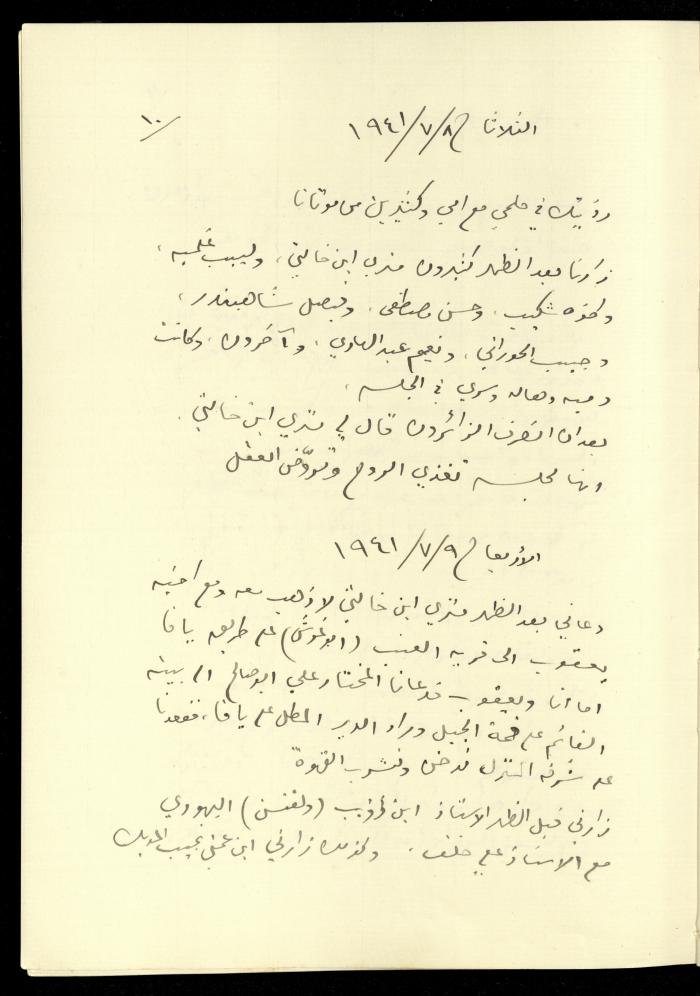 ١٠/
الثلاثاء في ٨/٧/١٩٤١
رؤيتك في حلمي مع امي وكثيرين من موتانا
زارنا بعد الظهر كثيرون متري ابن خالتي، ولبيب غلميه،
واخوه شكيب، وحسن مصطفى، وفيصل شاهبندر،
وحبيب الحوراني، ونعيم عبد الهادي، وآخرون، وكانت
دميه وهاله وسري في الجلسه.
بعد ان انصرف الزائرون قال لي متري ابن خالتي.
انها لجلسه تغذي الروح وتروّض العقل
الأربعاء في ٩/٧/١٩٤١
دعاني بعد الظهر متري ابن خالتي لاذهب معه ومع اخيه
يعقوب الى قريه العنب (ابو غوش) على طريق يافا
اما انا ويعقوب فدعانا المختار علي ابو صالح الى بيته
القائم على قمة الجبل وراء الدير المطل على يافا، فقعدنا
على شرفه المنزل ندخن ونشرب القهوة
زارني قبل الظهر الاستاذ ابن زئيب (ولفنسن) اليهودي
مع الاستاذ علي خلف. وكذلك زارني ابن عمتي نجيب